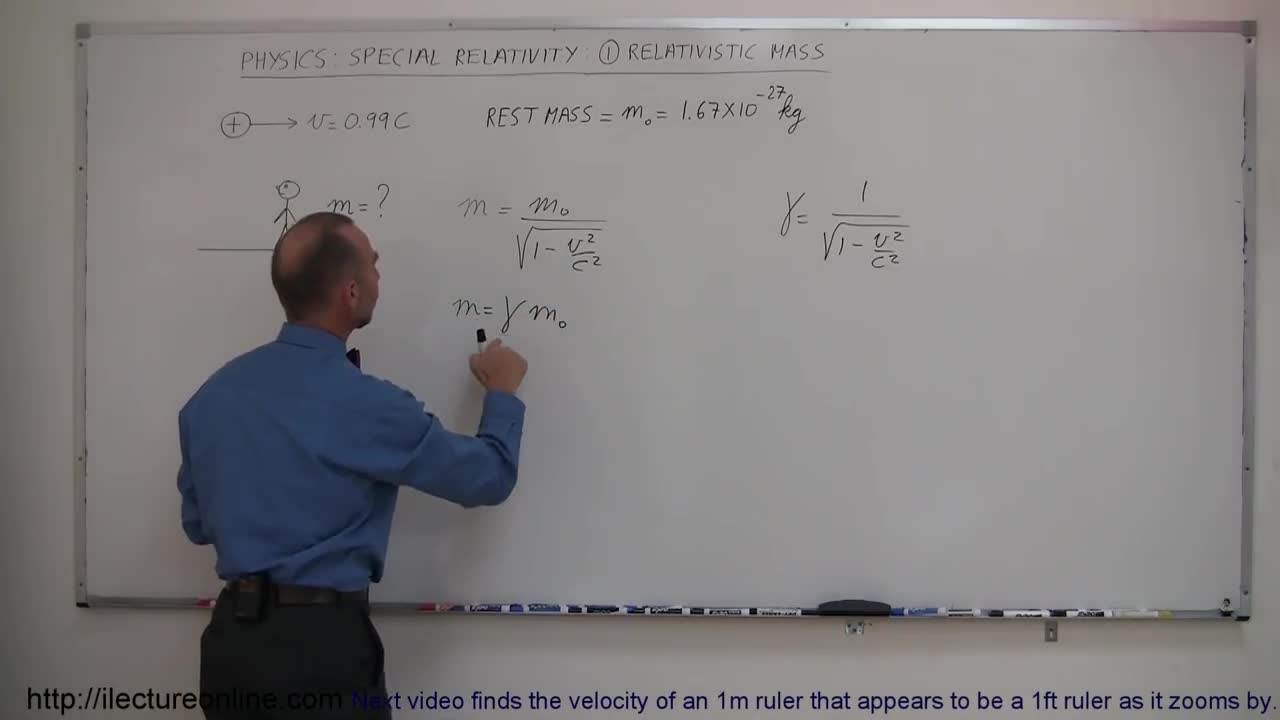 PHYSICS: SPECIAL RELATIVITY: ① RELATIVISTIC MASS
⊕ → v = 0.99C
REST MASS = m₀ = 1.67X10⁻²⁷ kg
m = ?
m = m₀ / √(1 - v²/c²)
γ = 1 / √(1 - v²/c²)
m = γ m₀
http://ilectureonline.com
Next video finds the velocity of an 1m ruler that appears to be a 1ft ruler as it zooms by.